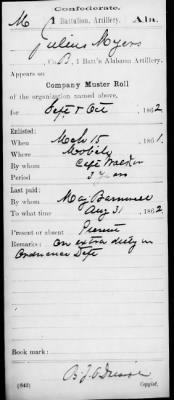 Confederate.
M 1 Battalion, Artillery. Ala.
Julius Myers
Co. B, 1 Batt'n Alabama Artillery.
Appears on
Company Muster Roll
of the organization named above,
for Sept & Oct, 1862
Enlisted:
When Mch 15, 1861.
Where Mobile
By whom Capt Walker
Period 3 years
Last paid:
By whom Maj
To what time Aug 31, 1862.
Present or absent Present
Remarks: On extra duty in
Ordnance Dept
Book mark:
(642) Copyist.